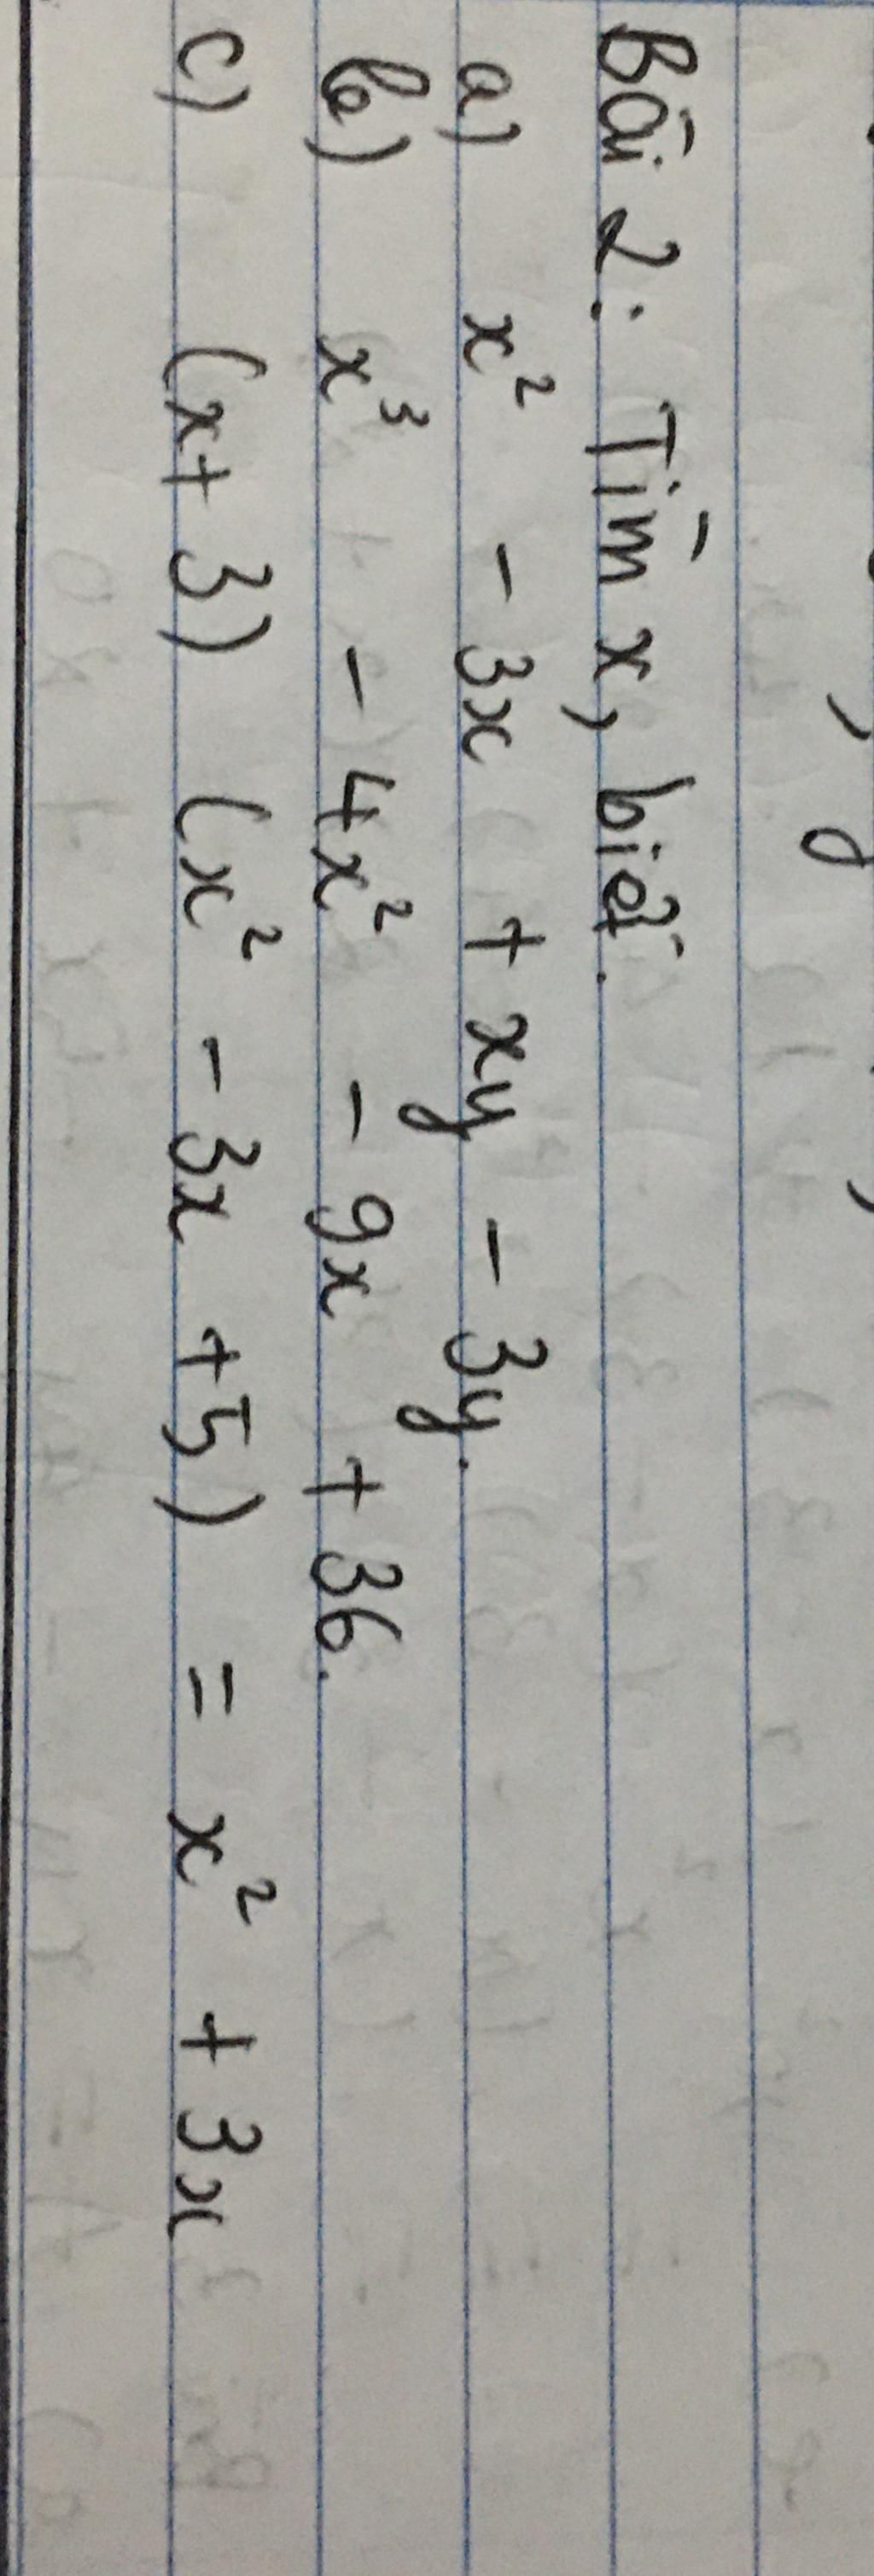 Bài 2: Tìm x, biết.
a) x² - 3x + xy - 3y.
b) x³ - 4x² - 9x + 36.
c) (x + 3) (x² - 3x + 5) = x² + 3x